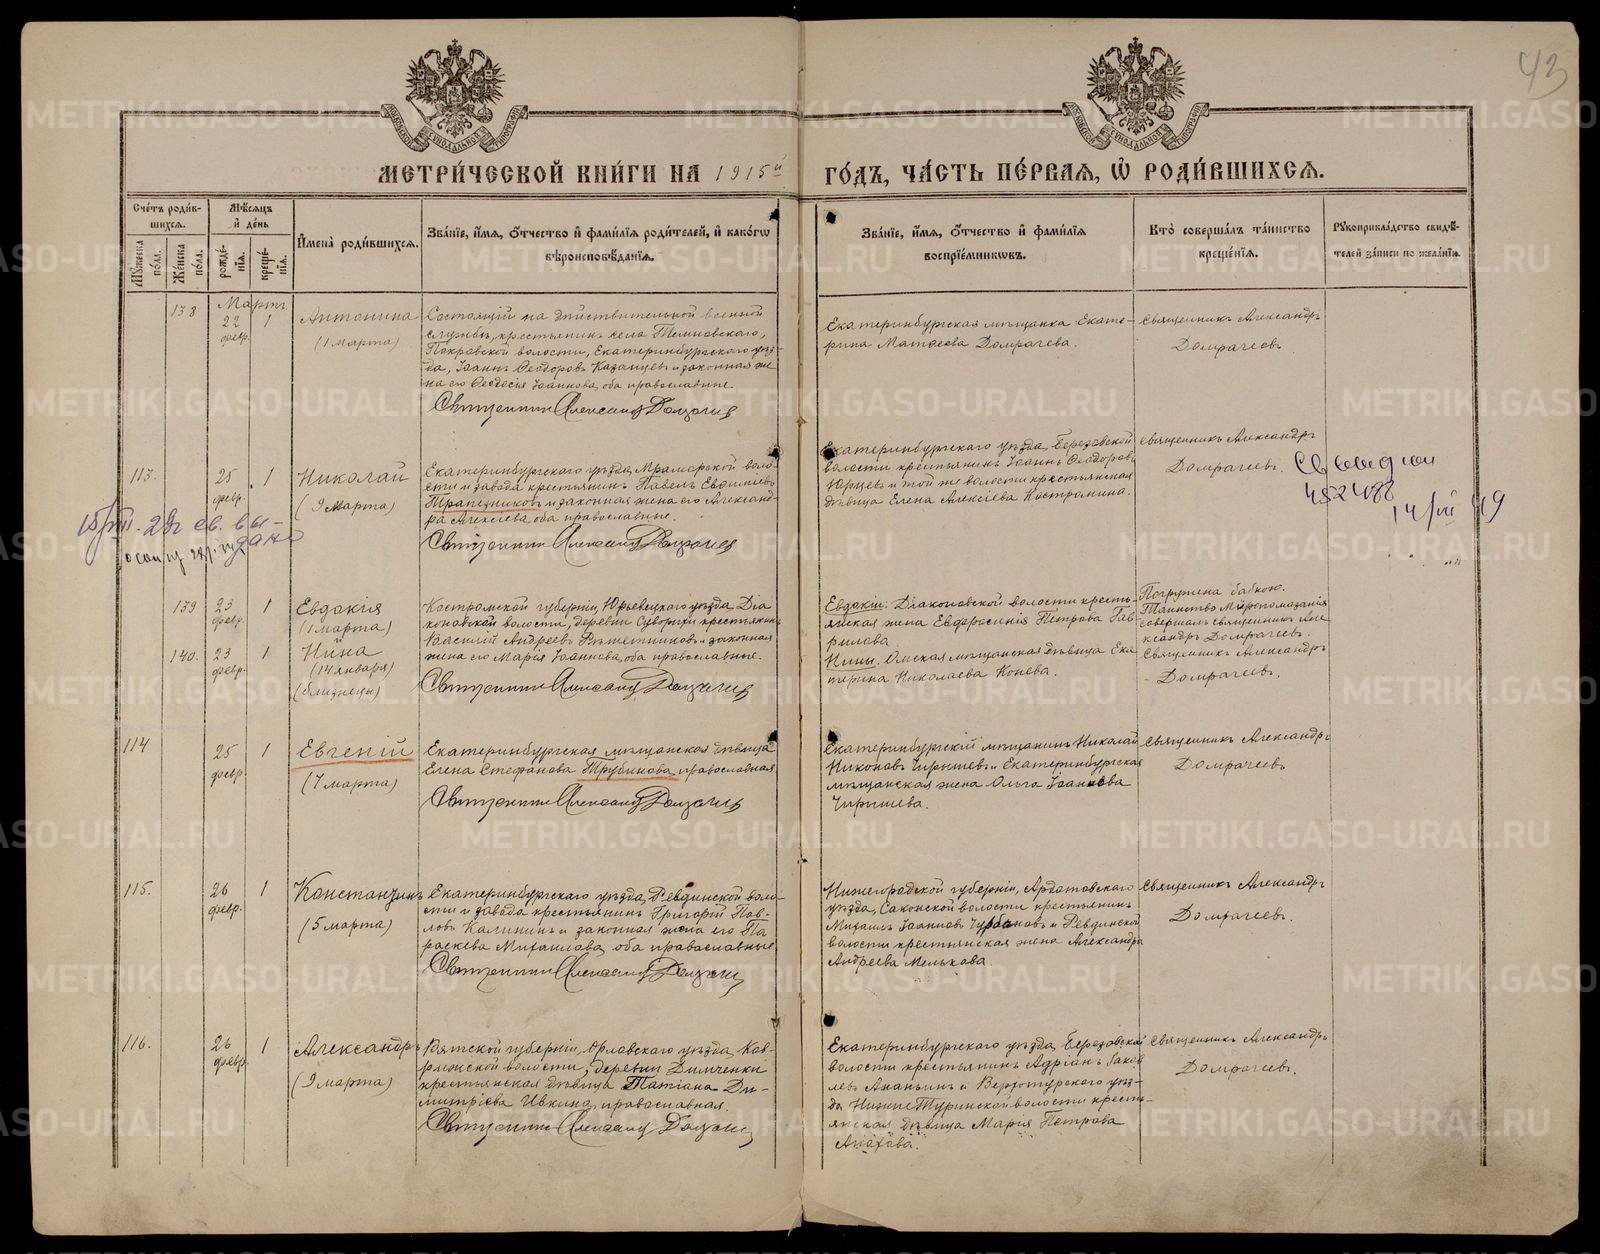 43
МЕТРИ́ЧЕСКОЙ КНИ́ГИ НА 1915й ГО́ДЪ, ЧА́СТЬ ПЕ́РВАЯ, Ѡ РОДИ́ВШИХСЯ.
Сче́тъ роди́в-
шихся.
Му́жеска по́ла.
Же́нска по́ла.
Мѣ́сяцъ и де́нь
рожде́нїя.
креще́нїя.
И҆мена̀ роди́вшихся.
Зва́нїе, и҆́мя, ѻ҆́тчество и҆ фами́лїя роди́телей, и҆ како́гѡ
вѣроисповѣ́данїя.
Зва́нїе, и҆́мя, ѻ҆́тчество и҆ фами́лїя
воспрїе́мникѡвъ.
Кто̀ соверша́лъ та́инство
креще́нїя.
Рꙋкоприкла́дство свидѣ́-
телей за́писи по жела́нїю.
Мартъ
138
22
февр.
1
Антонина
(1 марта)
Состоящій на дѣйствительной военной
службѣ, крестьянинъ села Темновскаго,
Покровской волости, Екатеринбургскаго уѣз-
да, Іоаннъ Ѳеодоровъ Казанцевъ и законная же-
на его Ѳеодосія Іоаннова, оба православные.
Священникъ Александръ Домрачевъ
Екатеринбургская мѣщанка Екате-
рина Матѳеева Домрачева.
Священникъ Александръ
Домрачевъ.
113.
25
февр.
1
Николай
(9 марта)
Екатеринбургскаго уѣзда, Мраморской воло-
сти и завода крестьянинъ Павелъ Евфиміевъ
Трапезниковъ и законная жена его Александ-
ра Алексіева, оба православные.
Священникъ Александръ Домрачевъ
Екатеринбургскаго уѣзда, Березовской
волости крестьянинъ Іоаннъ Ѳеодоровъ
Юрцевъ и той же волости крестьянская
дѣвица Елена Алексіева Костромина.
Священникъ Александръ
Домрачевъ.
452488
14/VII 49
св. вы-
дано
139
23
февр.
1
Евдокія
(1 марта)
140.
23
февр.
1
Нина
(14 января)
(близнецы)
Костромской губерніи, Юрьевецкаго уѣзда, Діа-
коновской волости, деревни Суворихи крестьянинъ
Василій Андреевъ Рѣшетниковъ и законная
жена его Марія Іоаннова, оба православные.
Священникъ Александръ Домрачевъ
Евдокіи: Діаконовской волости кресть-
янская жена Евфросинія Петрова Гав-
рилова
Нины. Омская мѣщанская дѣвица Ека-
терина Николаева Конева.
Погружена бабкою.
Таинство Мѵропомазанія
совершалъ священникъ Але-
ксандръ Домрачевъ.
Священникъ Александръ
Домрачевъ.
114
25
февр.
1
Евгеній
(7 марта)
Екатеринбургская мѣщанская дѣвица
Елена Стефанова Трубинова, православная
Священникъ Александръ Домрачевъ
Екатеринбургскій мѣщанинъ Николай
Никоновъ Чирышевъ и Екатеринбургская
мѣщанская жена Ольга Іоаннова
Чирышева.
Священникъ Александръ
Домрачевъ
115.
26
февр.
1
Константинъ
(5 марта)
Екатеринбургскаго уѣзда, Ревдинской воло-
сти и завода крестьянинъ Григорій Пав-
ловъ Калининъ и законная жена его Па-
раскева Михаилова, оба православные
Священникъ Александръ Домрачевъ
Нижегородской губерніи, Ардатовскаго
уѣзда, Саконской волости крестьянинъ
Михаилъ Іоанновъ Чурбановъ и Ревдинской
волости крестьянская жена Александра
Андреева Мелькова.
Священникъ Александръ
Домрачевъ.
116.
26
февр.
1
Александръ
(9 марта)
Вятской губерніи, Орловскаго уѣзда, Ков-
рижской волости, деревни Димченки
крестьянская дѣвица Татіана Ди-
митріева Ивкина, православная.
Священникъ Александръ Домрачевъ
Екатеринбургскаго уѣзда, Березовской
волости крестьянинъ Адріанъ Іаков-
левъ Ананьинъ и Верхотурскаго уѣз-
да, НижнеТуринской волости кресть-
янская дѣвица Марія Петрова
Анахова.
Священникъ Александръ
Домрачевъ.
METRIKI.GASO-URAL.RU